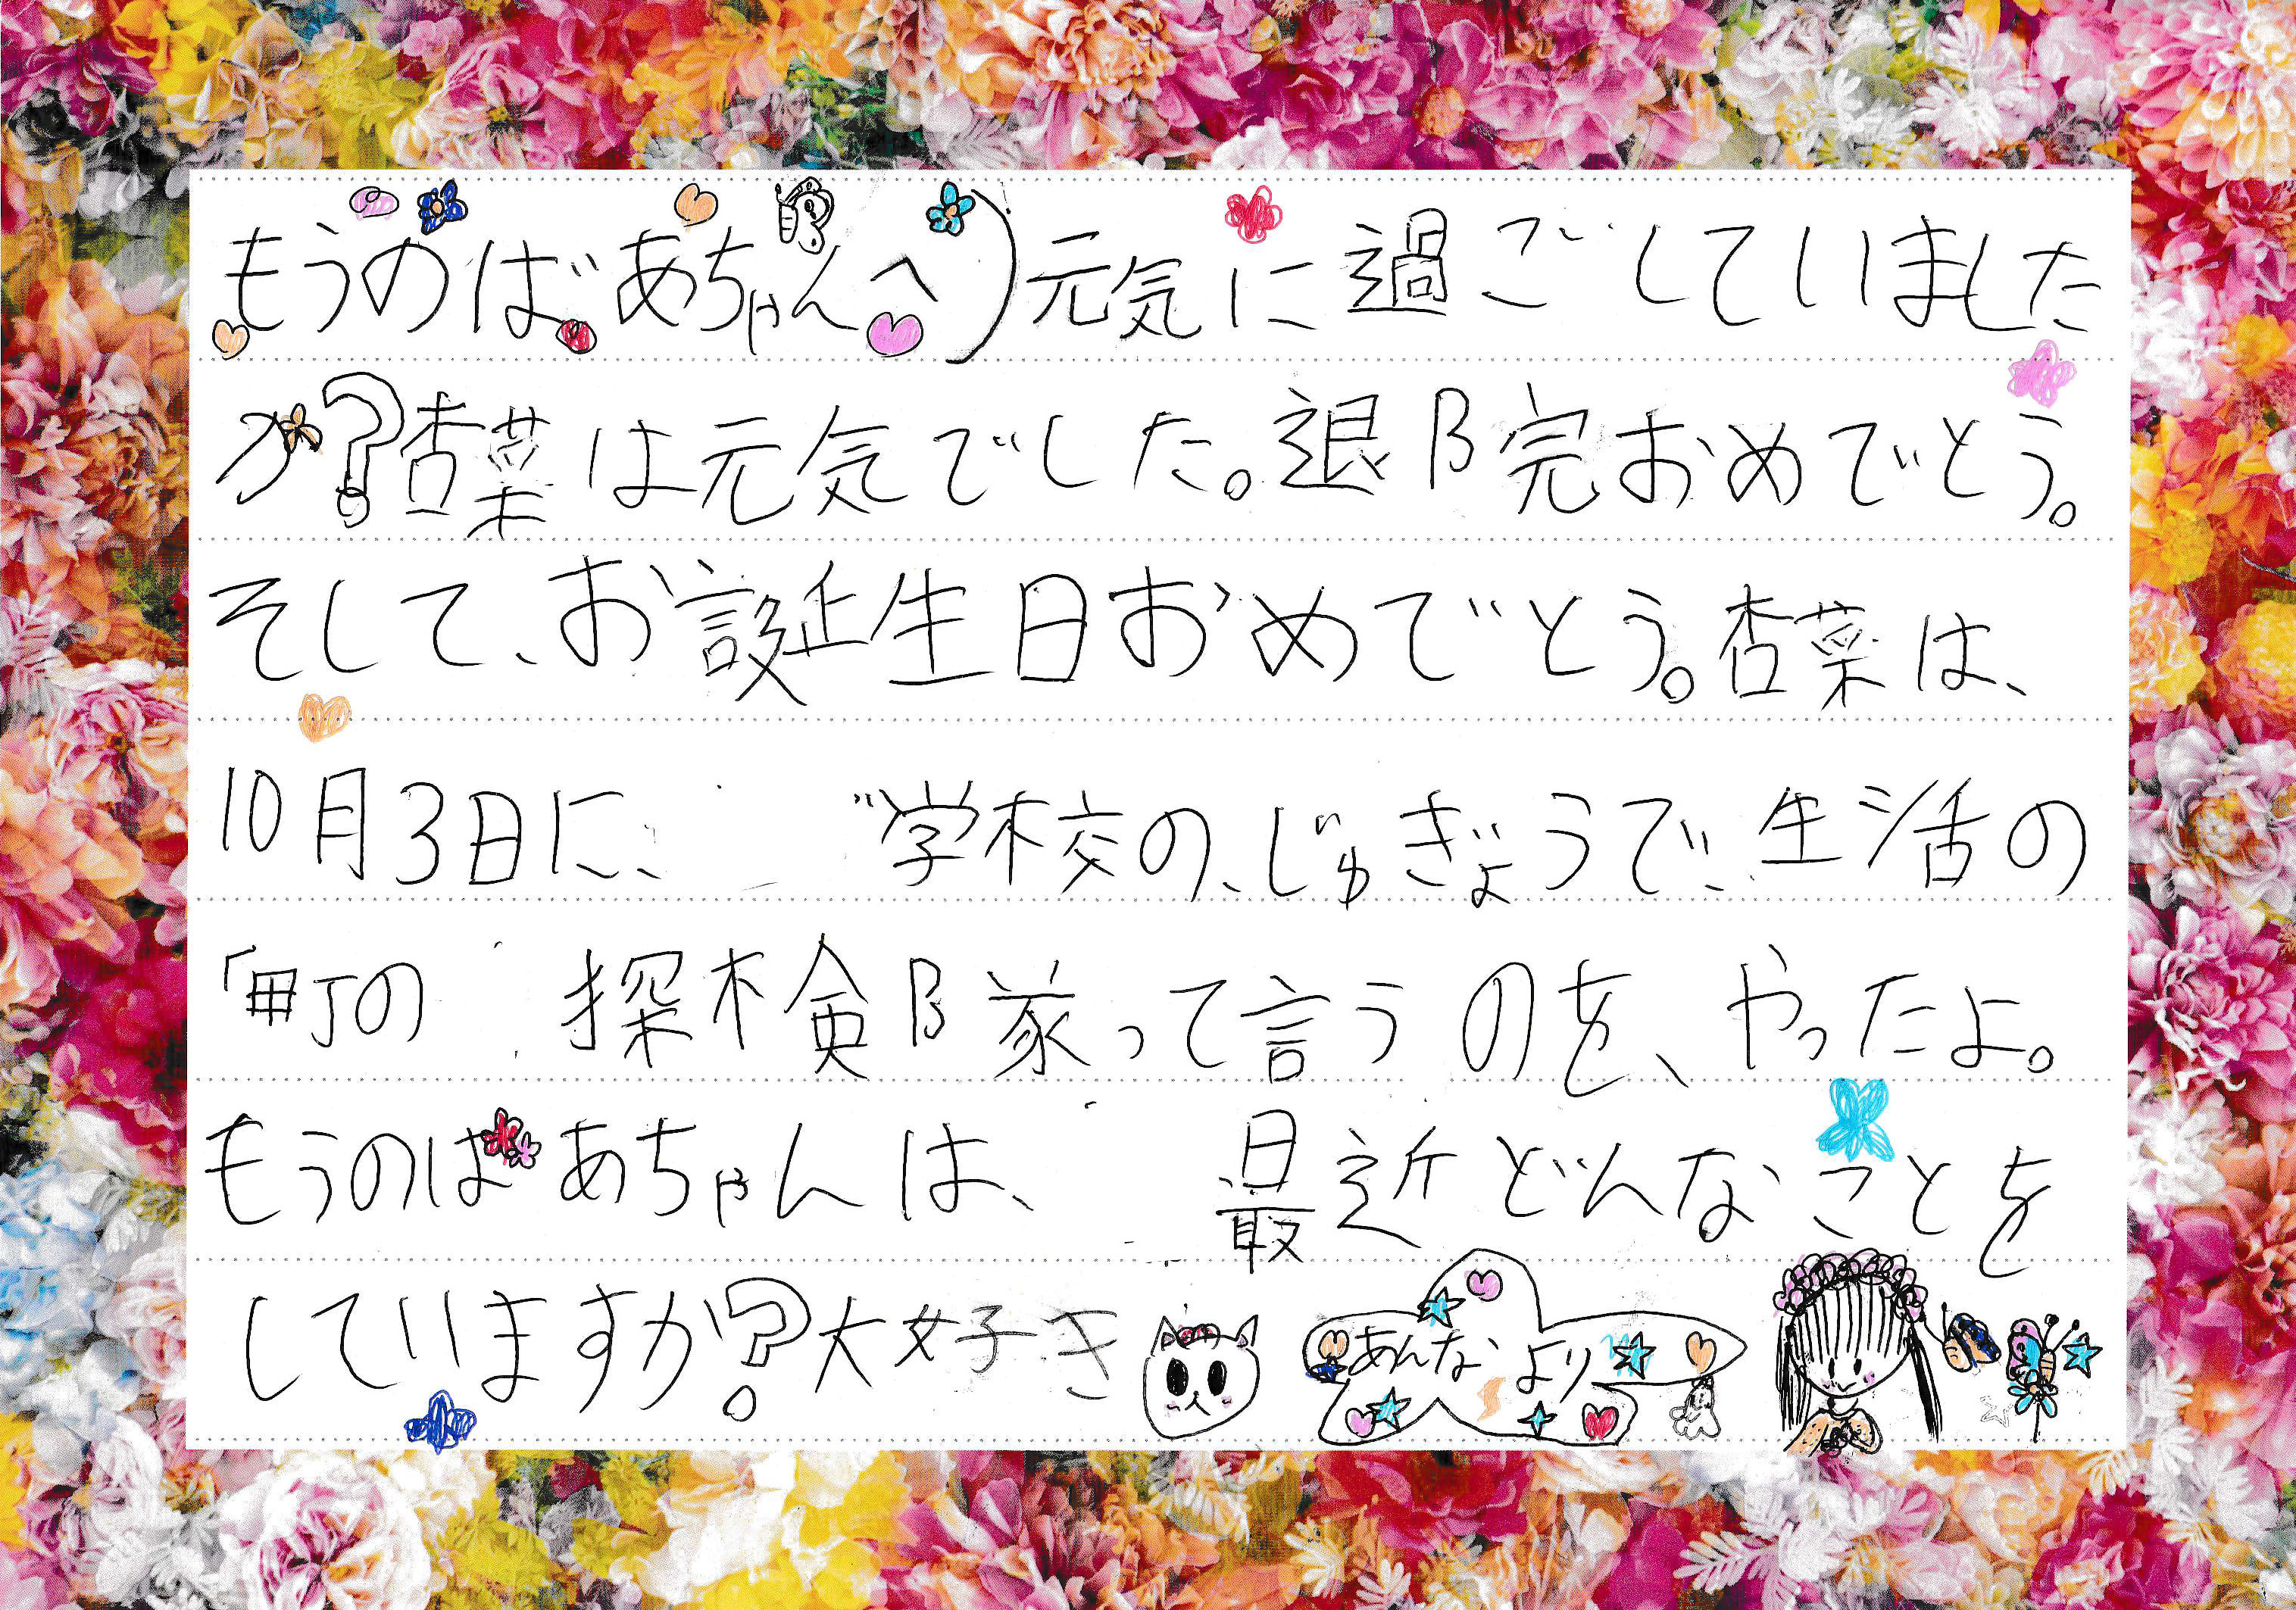 もうのばあちゃんへ)元気に過ごしていました
が?杏菜は元気でした。退院おめでとう。
そして、お誕生日おめでとう。杏菜は、
10月3日に、学校の、じゅぎょうで、生活の
「町の探検隊って言うのを、やったよ。
もうのばあちゃんは、最近どんなことを
していますか?大好き
あんなより